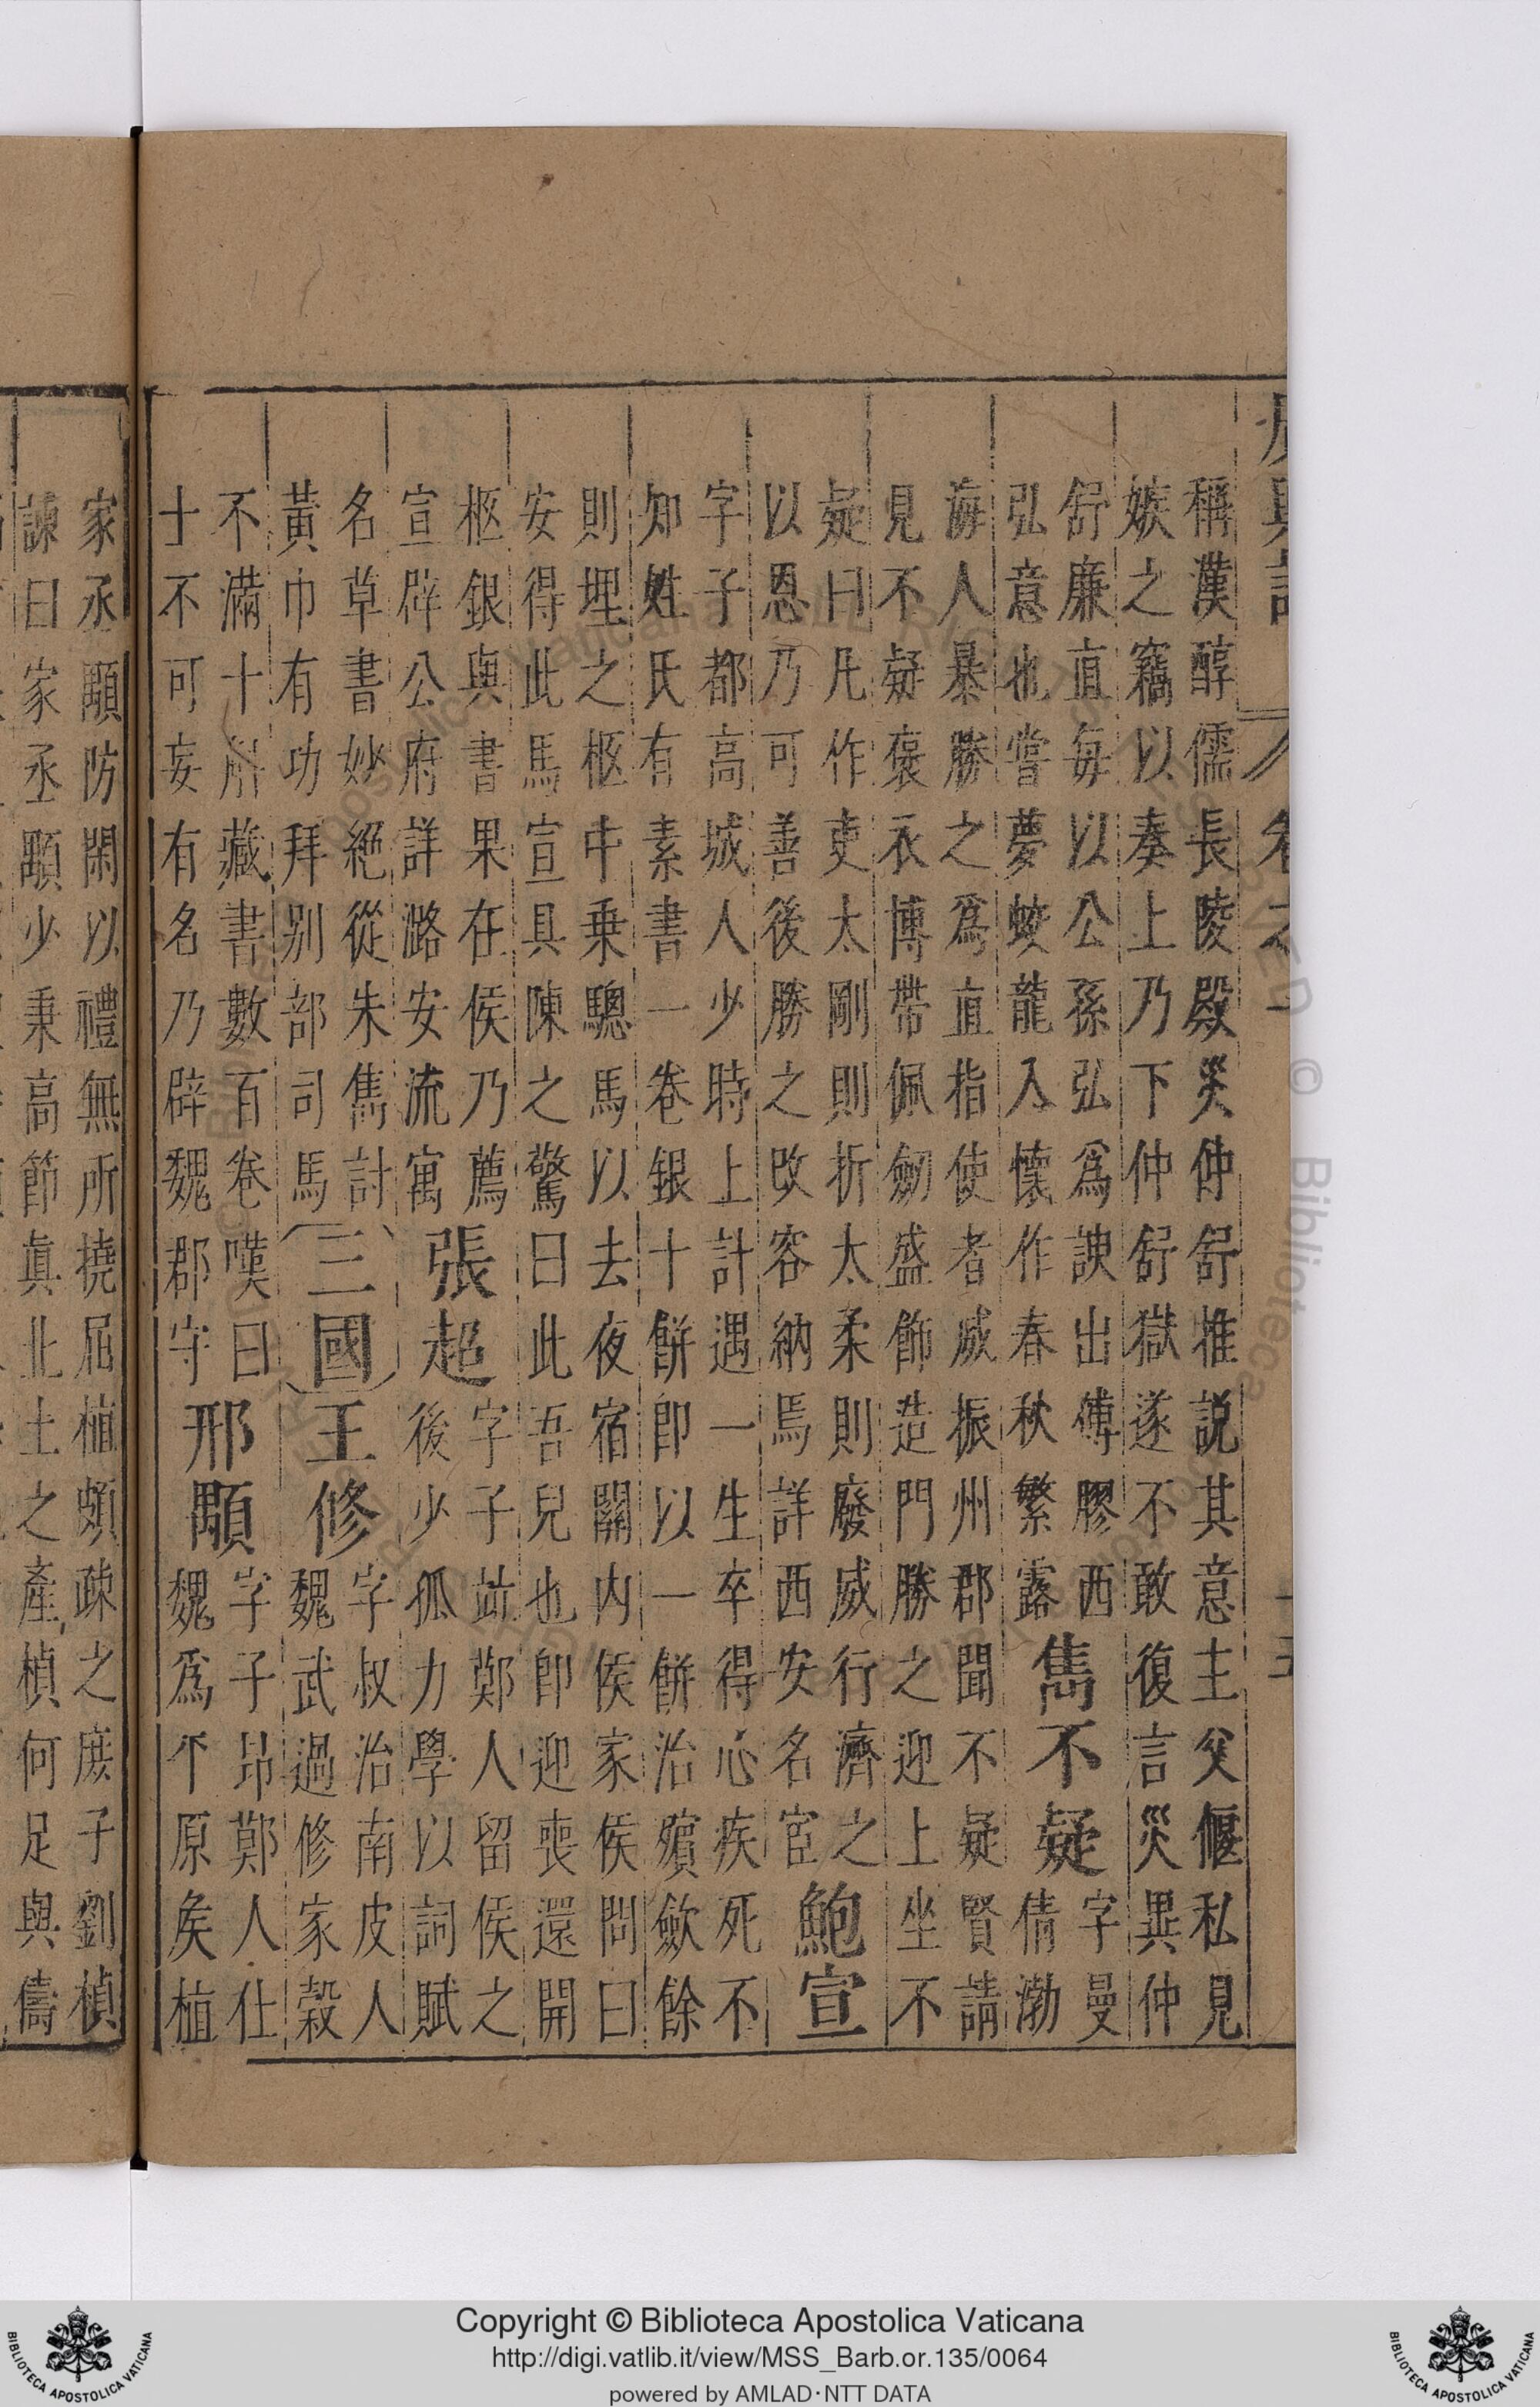 稱漢醇儒長陵殿災仲舒推說其意主父偃私見
嫉之竊以奏上乃下仲舒獄遂不敢復言災異仲
舒廉直每以公孫弘爲諛出傅膠西
弘意也嘗夢蛟龍入懷作春秋繁露
雋不疑
字曼
倩渤
海人暴勝之爲直指使者威振州郡聞不疑賢請
見不疑褒衣博帶佩劒盛飾造門勝之迎上坐不
疑曰凡作吏太剛則折太柔則廢威行濟之
以恩乃可善後勝之改容納焉詳西安名宦
鮑宣
字子都高城人少時上計遇一生卒得心疾死不
知姓氏有素書一卷銀十餅即以一餅治殯歛餘
則埋之柩中乗驄馬以去夜宿關内侯家侯問曰
安得此馬宣具陳之驚曰此吾兒也即迎喪還開
柩銀與書果在侯乃薦
宣辟公府詳潞安流寓
張超
字子竝鄭人留侯之
後少孤力學以詞賦
名草書妙絕從朱雋討
黃巾有功拜别部司馬
三國
王修
字叔治南皮人
魏武過修家穀
不滿十斛藏書數百卷嘆曰
士不可妄有名乃辟魏郡守
邢顒
字子昻鄭人仕
魏爲平原侯植
家丞顒防閑以禮無所撓屈植頗疎之庻子劉楨
諫曰家丞顒少秉高節眞北土之產楨何足與儔
卷之
Copyright © Biblioteca Apostolica Vaticana
http://digi.vatlib.it/view/MSS_Barb.or.135/0064
powered by AMLAD·NTT DATA
BIBLIOTECA APOSTOLICA VATICANA
BIBLIOTECA APOSTOLICA VATICANA